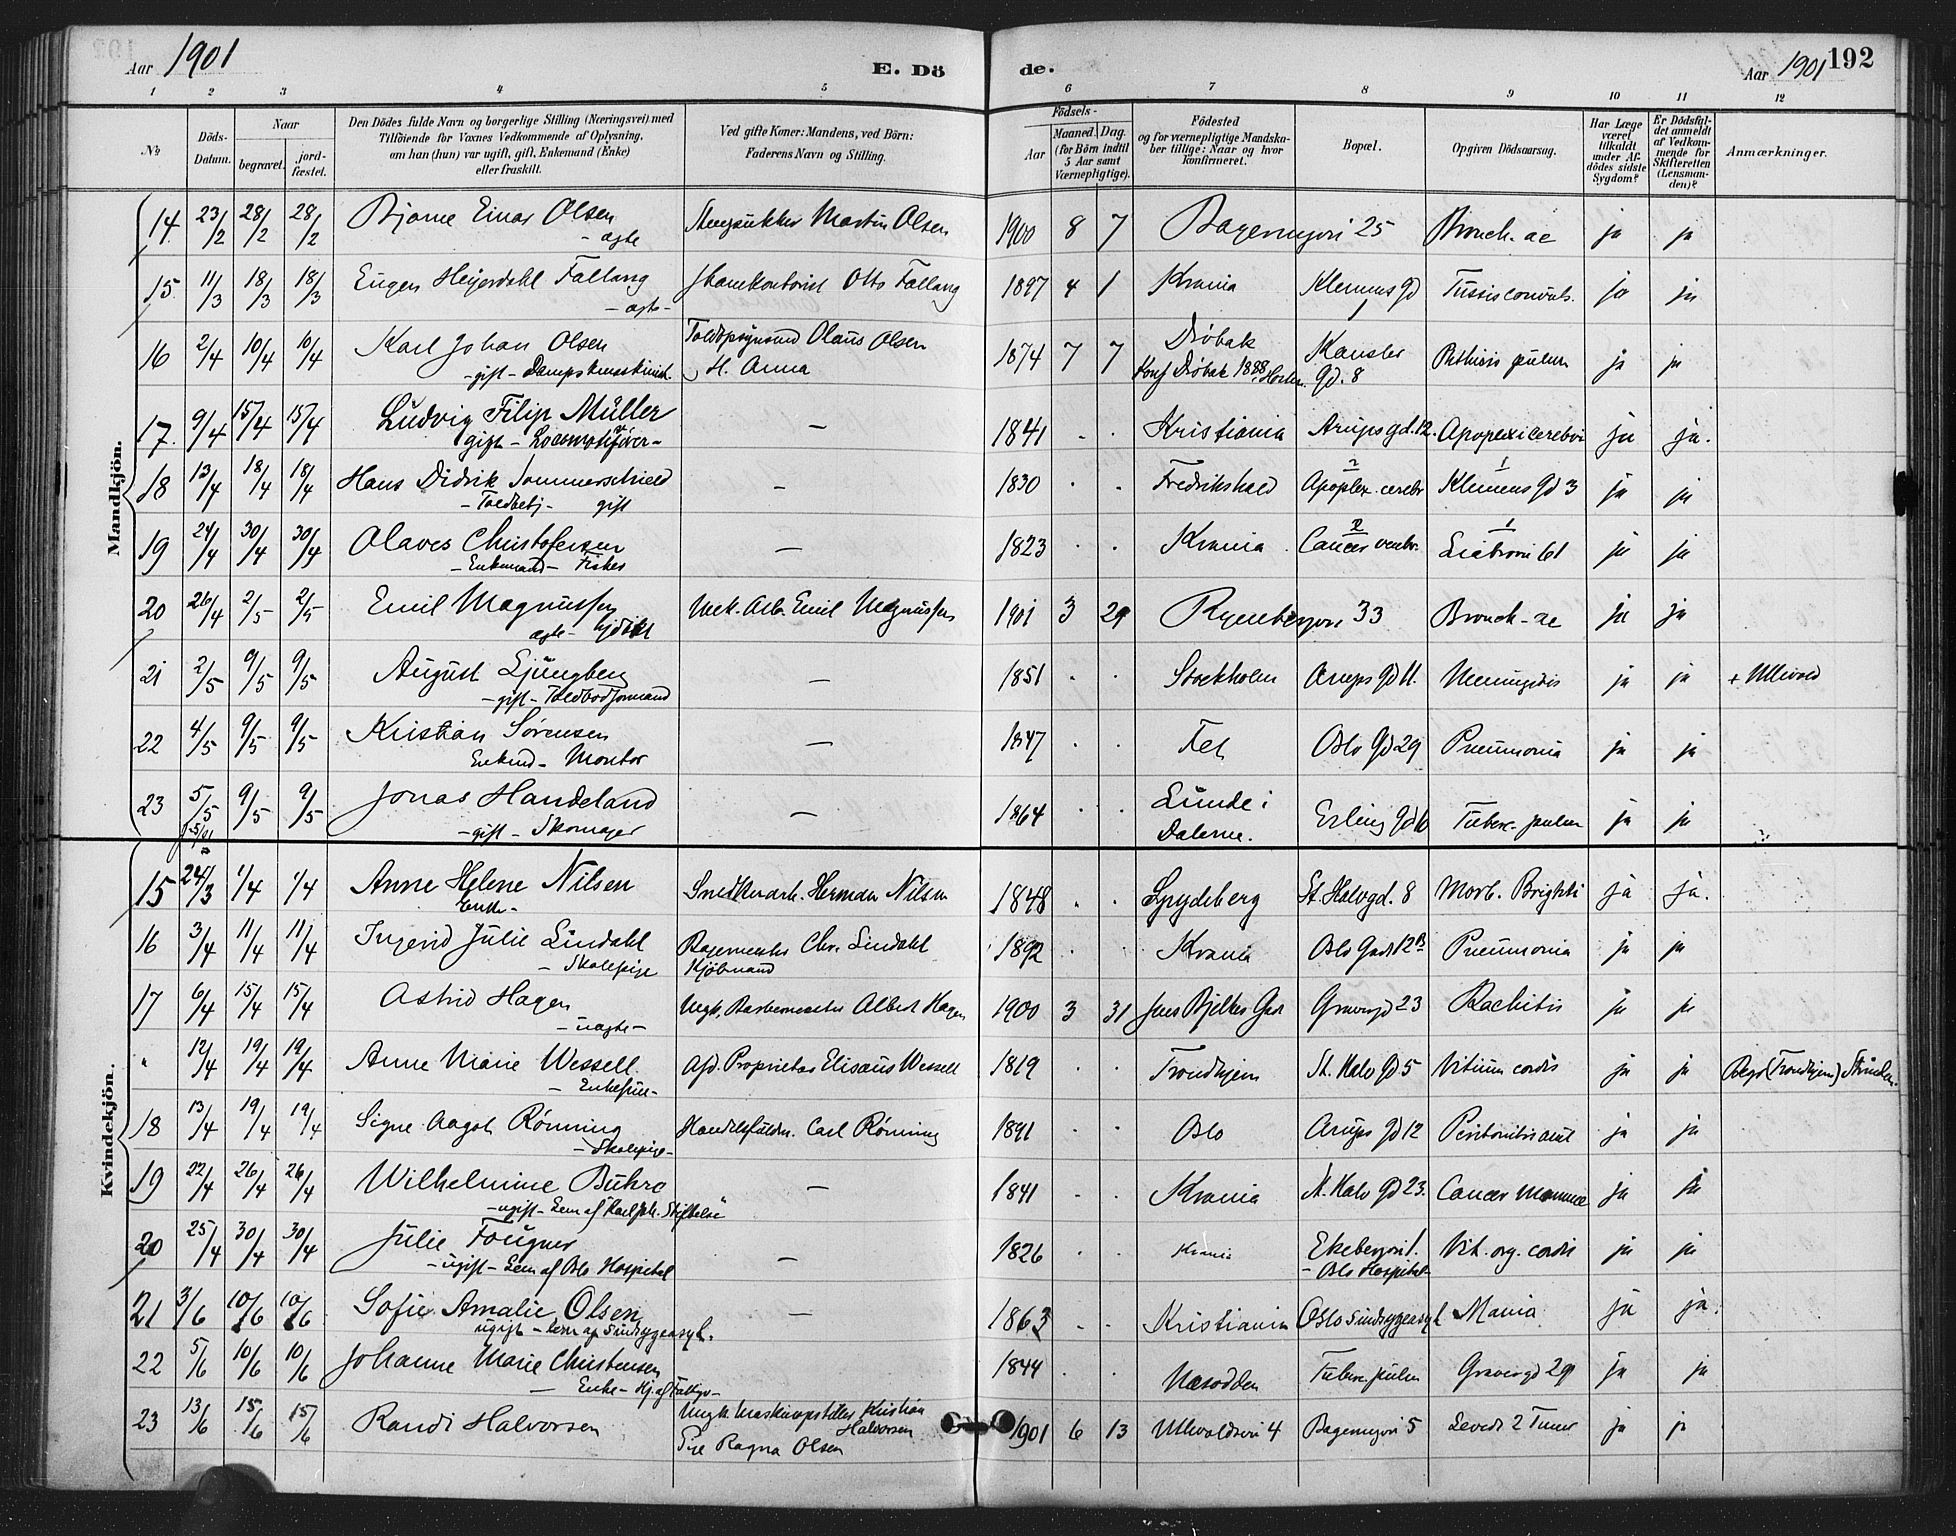 Aar 1901
E. Dö
de.
Aar 1901 192
1 2 3 4 5 6 7 8 9 10 11 12
No
Döds-Datum.
Naar
begravet.
jord-fæstet.
Den Dödes fulde Navn og borgerlige Stilling (Næringsvei) med
Tilföiende for Voxnes Vedkommende af Oplysning,
om han (hun) var ugift, gift, Enkemand (Enke)
eller fraskilt.
Ved gifte Koner: Mandens, ved Börn:
Faderens Navn og Stilling.
Födsels-
Aar
Maaned. Dag.
(for Börn indtil
5 Aar samt
Værnepligtige).
Födested
og for værnepligtige Mandska-
ber tillige: Naar og hvor
konfirmeret.
Bopæl.
Opgiven Dödsaarsag.
Har Læge
været
tilkaldt
under Af-
dödes sidste
Sygdom?
Er Dödsfal-
det anmeldt
af Vedkom-
mende for
Skifteretten
(Lensman-
den)?
Anmærkninger.
Mandkjön.
14 23/2 28/2 28/2 Bjarne Einar Olsen Martin Olsen 1900 8 7 25 Bronch. ac ja ja
- ægte
15 11/3 18/3 18/3 Eugen Heyerdahl Fallang Otto Fallang 1897 4 1 Krania Klemens Gd 1 Tussis convuls. ja ja
- ægte -
16 2/4 10/4 10/4 Karl Johan Olsen Olaus Olsen 1874 7 7 Drøbak Kansler Phthisis pulm ja ja
- gift - H. Anna Konf Drøbak 1888 Gd. 8
17. 9/4 15/4 15/4 Ludvig Filip Müller — 1841 . . Kristiania Arups gd. 12. Apoplexi cerebri ja ja.
gift - Locomotivfører -
18 13/4 18/4 18/4 Hans Didrik Sommerschield — 1830 . . Fredrikshald Apoplex. cerebr Klemens Gd 3 ja ja
- Toldbetj - gift
19 24/4 30/4 30/4 Olaves Christofersen — 1823 . . Krania Cancer ventr. 61 ja ja
- Enkemand - Fisker
20 26/4 2/5 2/5 Emil Magnussen Mek. Arb. Emil Magnussen 1901 3 29 Ryenbergvei 33 Bronch - ac ja ja
ægte -
21 2/5 9/5 9/5 August Ljungberg — 1851 . . Stockholm Arups Gd 11. Meningitis ja ja + Ullevold
- gift - Toldbodformand
22 4/5 9/5 9/5 Kristian Sørensen — 1847 . . Fet Oslo Gd 29 Pneumonia ja ja
Enkmd - Montør
23 5/5 9/5 9/5 Jonas Handeland — 1864 . . Lunde i Erling Gd 6 Tuberc. pulm ja ja
- gift - Skomager Dalerne.
Kvindekjön.
15 24/3 1/4 1/4 Anne Helene Nilsen Herman Nilsen 1848 . . Spydeberg St. Halvgd. 8 Morb. Brightii ja ja.
Enke -
16 3/4 11/4 11/4 Ingerid Julie Lindahl Bagermester Chr. Lindahl 1892 . . Krania Oslo Gade 12B Pneumonia ja ja
- Skolepige Kjöbmand
17 6/4 15/4 15/4 Astrid Hagen Ungk. Barbermester Albert Hagen 1900 3 31 Jens Bjelkes Gade Grønergd 23 Rachitis ja ja
- uægte -
" 12/4 19/4 19/4 Anne Marie Wessell Afd. Proprietær Elisæus Wessell 1819 . . Trondhjem St. Halv Gd 5 Vitium cordis ja ja Begr (Trondhjem) Strinden.
- Enkefrue -
18 13/4 19/4 19/4 Signe Aagot Rönning Carl Rönning 1891 . . Oslo Arups Gd 12 Peritonitis acut ja ja
- Skolepige -
19 22/4 26/4 26/4 Wilhelmine Buhre — 1841 . . Krania St. Halv Gd 23. Cancer Mammae ja ja
- ugift - Lem af Karl Joh. Stiftelse
20 25/4 30/4 30/4 Julie Fougner — 1826 . . Krania Ekebergvei 1. Vit. org. cordis ja ja
- ugift - Lem af Oslo Hospital - Oslo Hospital -
21 3/6 10/6 10/6 Sofie Amalie Olsen — 1863 . . Kristiania Oslo Sindsygeasyl Mania ja ja.
ugift - Lem af Sindsygeasyl.
22 5/6 10/6 10/6 Johanne Marie Christensen 1844 . . Næsodden Tuberc. pulm Grønergd 29 ja ja
- Enke - Hj. af Fattigv -
23 13/6 15/6 15/6 Randi Halvorsen Ungk. Maskinopstiller Kristian Halvorsen 1901 6 13 Ullevoldsvei 4 5 Levede 2 Timer ja ja
Pige Ragna Olsen